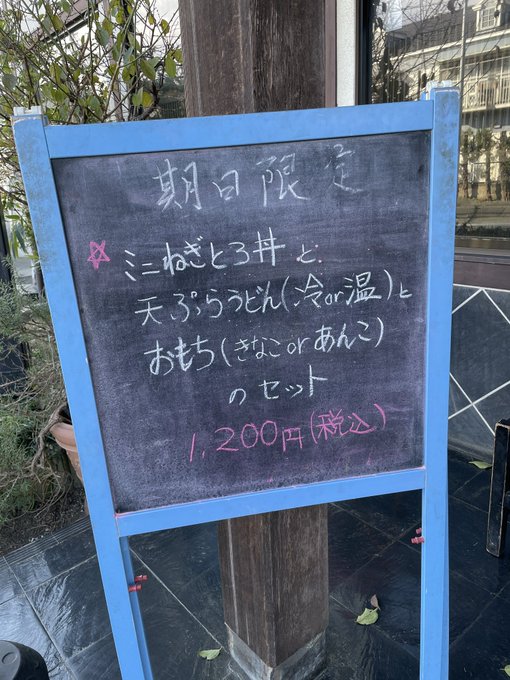 期日限定
☆ミニねぎとろ丼と
天ぷらうどん(冷or温)と
おもち(きなこorあんこ)
のセット
1,200円(税込)